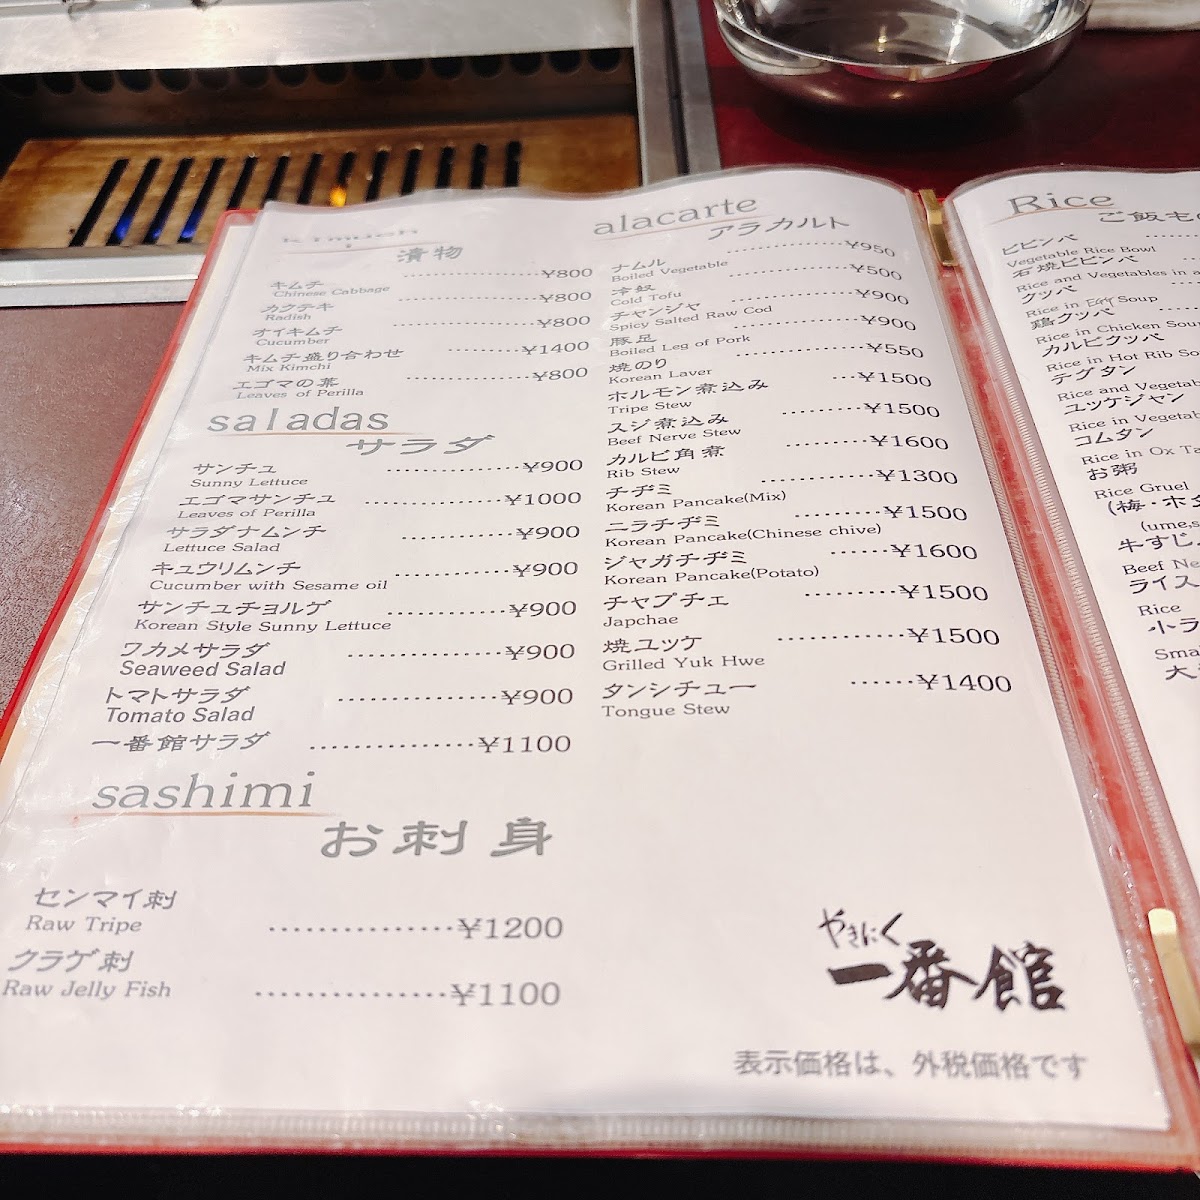 漬物
キムチ ¥800
Chinese Cabbage
カクテキ ¥800
Radish
オイキムチ ¥800
Cucumber
キムチ盛り合わせ ¥1400
Mix Kimchi
エゴマの葉 ¥800
Leaves of Perilla
saladas
サラダ
サンチュ ¥900
Sunny Lettuce
エゴマサンチュ ¥1000
Leaves of Perilla
サラダナムンチ ¥900
Lettuce Salad
キュウリムンチ ¥900
Cucumber with Sesame oil
サンチュチョルゲ ¥900
Korean Style Sunny Lettuce
ワカメサラダ ¥900
Seaweed Salad
トマトサラダ ¥900
Tomato Salad
一番館サラダ ¥1100
sashimi
お刺身
センマイ刺 ¥1200
Raw Tripe
クラゲ刺 ¥1100
Raw Jelly Fish
alacarte
アラカルト
ナムル ¥950
Boiled Vegetable
冷奴 ¥500
Cold Tofu
チャンジャ ¥900
Spicy Salted Raw Cod
豚足 ¥900
Boiled Leg of Pork
焼のり ¥550
Korean Laver
ホルモン煮込み ¥1500
Tripe Stew
スジ煮込み ¥1500
Beef Nerve Stew
カルビ角煮 ¥1600
Rib Stew
チヂミ ¥1300
Korean Pancake(Mix)
ニラチヂミ ¥1500
Korean Pancake(Chinese chive)
ジャガチヂミ ¥1600
Korean Pancake(Potato)
チャプチェ ¥1500
Japchae
焼ユッケ ¥1500
Grilled Yuk Hwe
タンシチュー ¥1400
Tongue Stew
やきにく
一番館
表示価格は、外税価格です
Rice
ご飯も
ビビンバ
Vegetable Rice Bowl
石焼ビビンバ
Rice and Vegetables in a
クッパ
Rice in Egg Soup
鶏クッパ
Rice in Chicken Soup
カルビクッパ
Rice in Hot Rib So
テグタン
Rice and Vegetab
ユッケジャン
Rice in Vegetab
コムタン
Rice in Ox Ta
お粥
Rice Gruel
(梅・ホタ
(ume,s
牛すじ
Beef Ne
ライス
Rice
小ラ
Sma
大